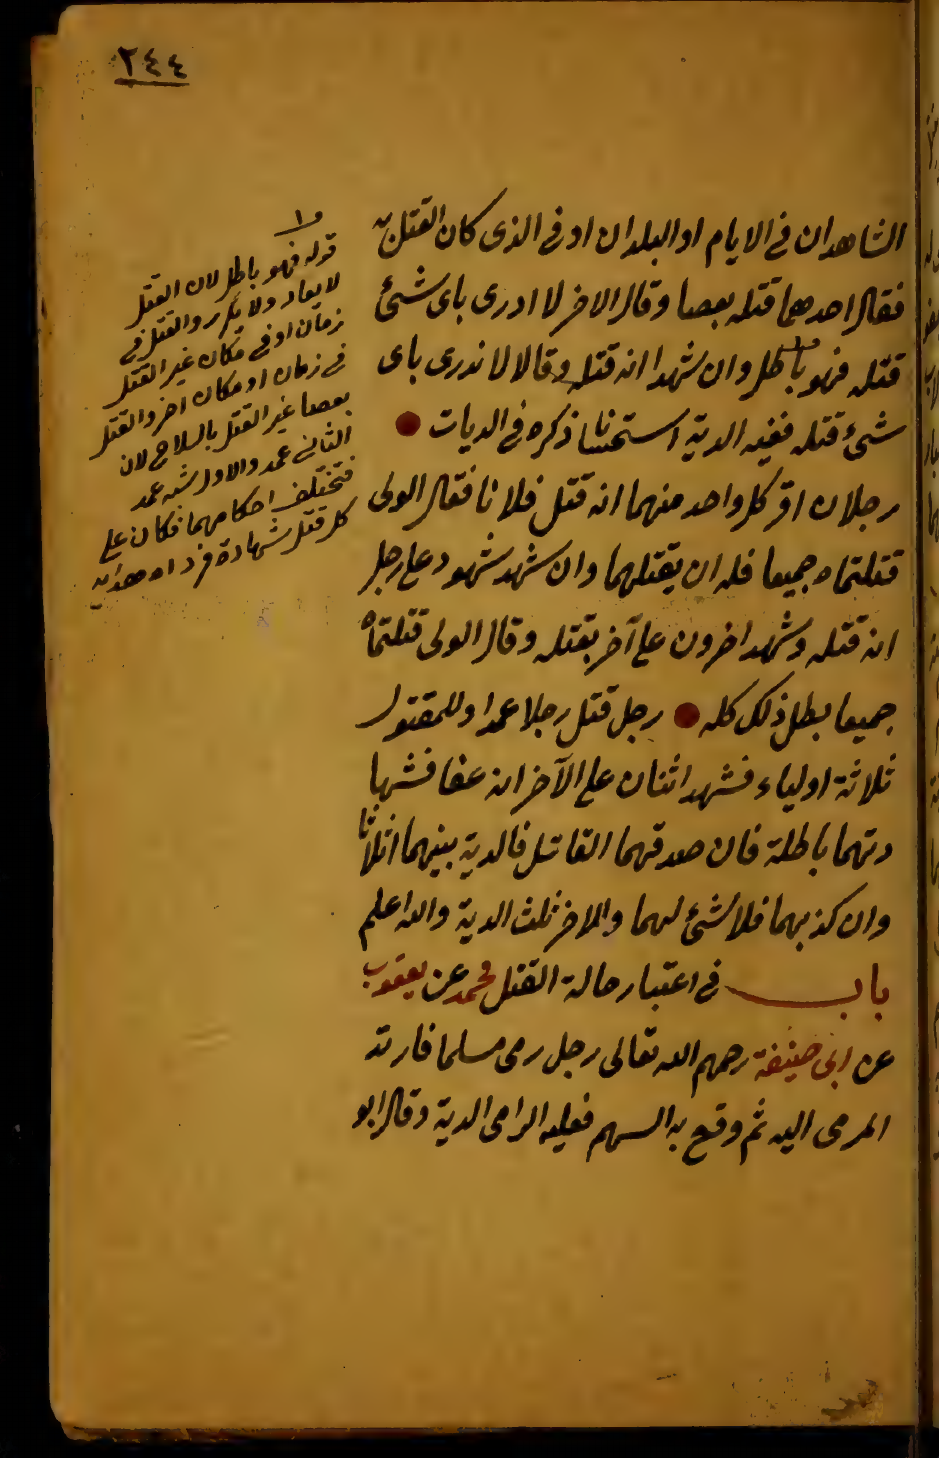 ٢٤٤
الشاهدان فى الايام او البلدان او فى الذى كان القتل به
فقال احدهما قتله بعصا وقال الاخر لا ادرى باى شئ
قتله فهو باطل وان شهدا انه قتله وقالا لا ندرى باى
شىء قتله ففيه الدية استحسانا ذكره فى الديات
رجلان اقر كل واحد منهما انه قتل فلانا فقال الولى
قتلتماه جميعا فله ان يقتلهما وان شهد شهود على رجل
انه قتله وشهد اخرون على آخر بقتله وقال الولى قتلتماه
جميعا بطل ذلك كله رجل قتل رجلا عمدا وللمقتول
ثلاثة اولياء فشهد اثنان على الآخر انه عفا فشها
دتهما باطلة فان صدقهما القاتل فالدية بينهما اثلاثا
وان كذبهما فلا شئ لهما وللاخر ثلث الدية والله اعلم
باب فى اعتبار حالة القتل محمد عن يعقوب
عن ابى حنيفة رحمهم الله تعالى رجل رمى مسلما فارتد
المرمى اليه ثم وقع به السهم فعليه الرامى الدية وقال ابو
قوله فهو باطل لان القتل
لا يعاد ولا يكرر والقتل فى
زمان او فى مكان غير القتل
فى زمان او مكان اخر والقتل
بعصا غير القتل بالسلاح لان
الثانى عمد والاول شبه عمد
فتختلف احكامهما فكان على
كل قتل شهادة فرد اه هدايه